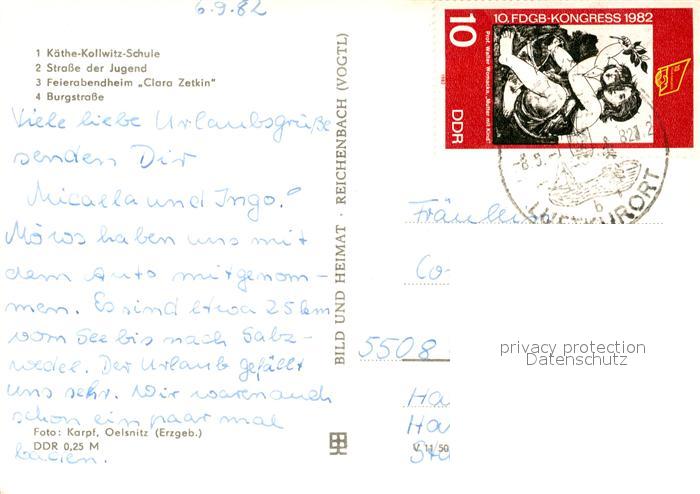 6.9.82
1 Käthe-Kollwitz-Schule
2 Straße der Jugend
3 Feierabendheim „Clara Zetkin“
4 Burgstraße
Viele liebe Urlaubsgrüße
senden Dir
Micaela und Ingo."
haben uns mit
dem Auto mitgenom-
men. Es sind etwa 25 km
vom See bis nach Salz-
wedel. Der Urlaub gefällt
uns sehr. Wir waren auch
schon ein paar mal
baden.
Foto: Karpf, Oelsnitz (Erzgeb.)
DDR 0,25 M
BILD UND HEIMAT · REICHENBACH (VOGTL)
V 11/50
10
10. FDGB-KONGRESS 1982
Prof. Walter Womacka, „Mutter mit Kind“
1982
DDR
LUFTKURORT
Fräulein
Co-
5508
Ha
Ha
Str
privacy protection
Datenschutz